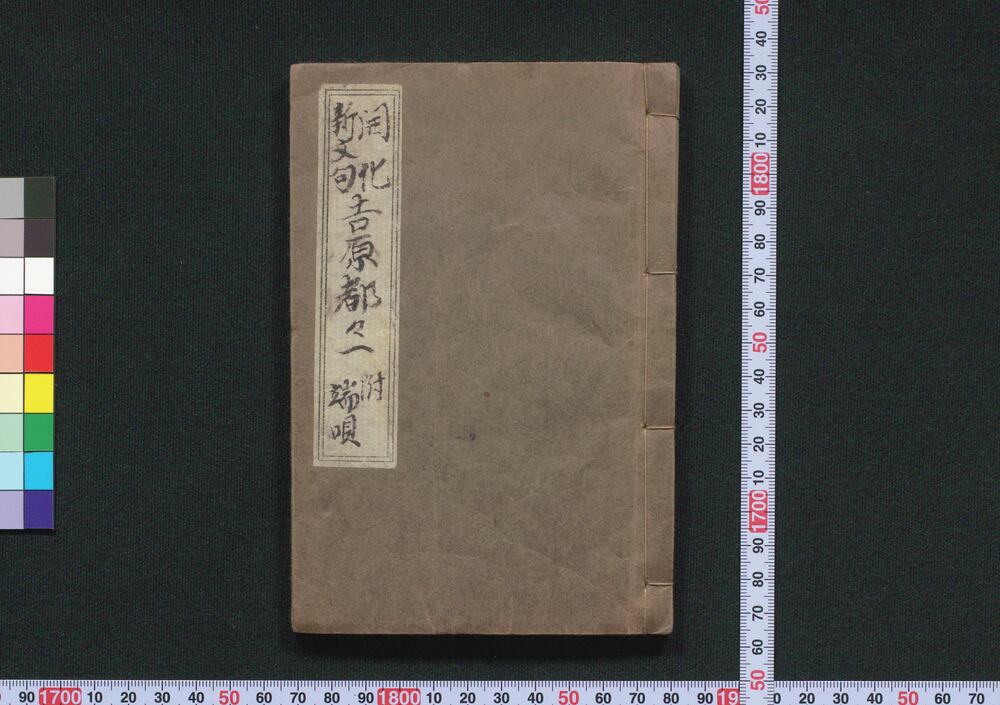 開化
新文句
吉原都々一
附
端唄
50
40
30
20
10
1800
90
80
70
60
50
40
30
20
10
1700
90
80
70
60
50
90 1700 10 20 30 40 50 60 70 80 90 1800 10 20 30 40 50 60 70 80 90 19
0 20 30 40 50 60 70